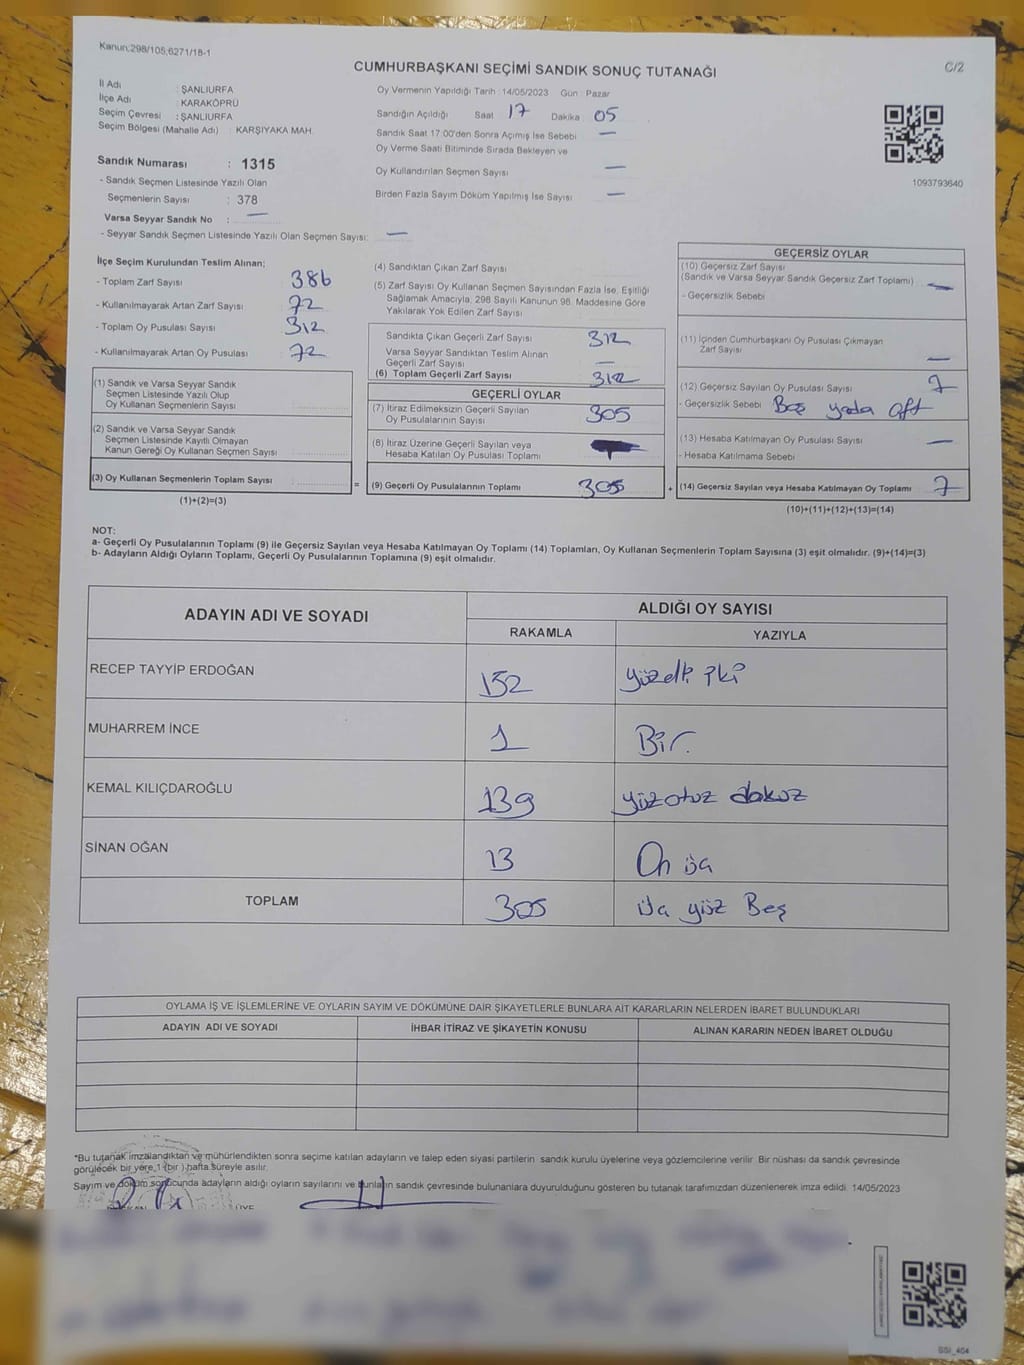 Kanun;298/105,6271/18-1
CUMHURBAŞKANI SEÇİMİ SANDIK SONUÇ TUTANAĞI
C/2
İl Adı : ŞANLIURFA
İlçe Adı : KARAKÖPRÜ
Seçim Çevresi : ŞANLIURFA
Seçim Bölgesi (Mahalle Adı) : KARŞIYAKA MAH.
Sandık Numarası : 1315
- Sandık Seçmen Listesinde Yazılı Olan
Seçmenlerin Sayısı : 378
Varsa Seyyar Sandık No : —
- Seyyar Sandık Seçmen Listesinde Yazılı Olan Seçmen Sayısı: —
Oy Vermenin Yapıldığı Tarih : 14/05/2023 Gün : Pazar
Sandığın Açıldığı Saat 17 Dakika : 05
Sandık Saat 17:00'den Sonra Açılmış İse Sebebi —
Oy Verme Saati Bitiminde Sırada Bekleyen ve
Oy Kullandırılan Seçmen Sayısı —
Birden Fazla Sayım Döküm Yapılmış İse Sayısı —
1093793640
İlçe Seçim Kurulundan Teslim Alınan;
- Toplam Zarf Sayısı 386
- Kullanılmayarak Artan Zarf Sayısı 72
- Toplam Oy Pusulası Sayısı 312
- Kullanılmayarak Artan Oy Pusulası 72
(1) Sandık ve Varsa Seyyar Sandık
Seçmen Listesinde Yazılı Olup
Oy Kullanan Seçmenlerin Sayısı
(2) Sandık ve Varsa Seyyar Sandık
Seçmen Listesinde Kayıtlı Olmayan
Kanun Gereği Oy Kullanan Seçmen Sayısı
(3) Oy Kullanan Seçmenlerin Toplam Sayısı
(1)+(2)=(3)
(4) Sandıktan Çıkan Zarf Sayısı
(5) Zarf Sayısı Oy Kullanan Seçmen Sayısından Fazla İse, Eşitliği
Sağlamak Amacıyla, 298 Sayılı Kanunun 98. Maddesine Göre
Yakılarak Yok Edilen Zarf Sayısı
Sandıkta Çıkan Geçerli Zarf Sayısı 312
Varsa Seyyar Sandıktan Teslim Alınan
Geçerli Zarf Sayısı —
(6) Toplam Geçerli Zarf Sayısı 312
GEÇERLİ OYLAR
(7) İtiraz Edilmeksizin Geçerli Sayılan
Oy Pusulalarının Sayısı 305
(8) İtiraz Üzerine Geçerli Sayılan veya
Hesaba Katılan Oy Pusulası Toplamı
= (9) Geçerli Oy Pusulalarının Toplamı 305 +
GEÇERSİZ OYLAR
(10) Geçersiz Zarf Sayısı
(Sandık ve Varsa Seyyar Sandık Geçersiz Zarf Toplamı) —
- Geçersizlik Sebebi
(11) İçinden Cumhurbaşkanı Oy Pusulası Çıkmayan
Zarf Sayısı —
(12) Geçersiz Sayılan Oy Pusulası Sayısı 7
- Geçersizlik Sebebi Boş yada çift
(13) Hesaba Katılmayan Oy Pusulası Sayısı —
- Hesaba Katılmama Sebebi
(14) Geçersiz Sayılan veya Hesaba Katılmayan Oy Toplamı 7
(10)+(11)+(12)+(13)=(14)
NOT:
a- Geçerli Oy Pusulalarının Toplamı (9) ile Geçersiz Sayılan veya Hesaba Katılmayan Oy Toplamı (14) Toplamları, Oy Kullanan Seçmenlerin Toplam Sayısına (3) eşit olmalıdır. (9)+(14)=(3)
b- Adayların Aldığı Oyların Toplamı, Geçerli Oy Pusulalarının Toplamına (9) eşit olmalıdır.
ADAYIN ADI VE SOYADI
ALDIĞI OY SAYISI
RAKAMLA YAZIYLA
RECEP TAYYİP ERDOĞAN 152 yüzelli iki
MUHARREM İNCE 1 Bir.
KEMAL KILIÇDAROĞLU 139 yüzotuz dokuz
SİNAN OĞAN 13 On üç
TOPLAM 305 üç yüz Beş
OYLAMA İŞ VE İŞLEMLERİNE VE OYLARIN SAYIM VE DÖKÜMÜNE DAİR ŞİKAYETLERLE BUNLARA AİT KARARLARIN NELERDEN İBARET BULUNDUKLARI
ADAYIN ADI VE SOYADI İHBAR İTİRAZ VE ŞİKAYETİN KONUSU ALINAN KARARIN NEDEN İBARET OLDUĞU
*Bu tutanak imzalandıktan ve mühürlendikten sonra seçime katılan adayların ve talep eden siyasi partilerin sandık kurulu üyelerine veya gözlemcilerine verilir. Bir nüshası da sandık çevresinde
görülecek bir yere 1 (bir ) hafta süreyle asılır.
Sayım ve döküm sonucunda adayların aldığı oyların sayılarını ve bunların sandık çevresinde bulunanlara duyurulduğunu gösteren bu tutanak tarafımızdan düzenlenerek imza edildi. 14/05/2023
ÜYE
SSI_404